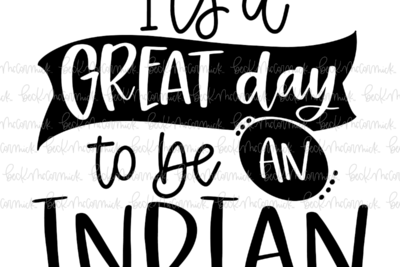 It's a
GREAT day
to be AN
INDIAN